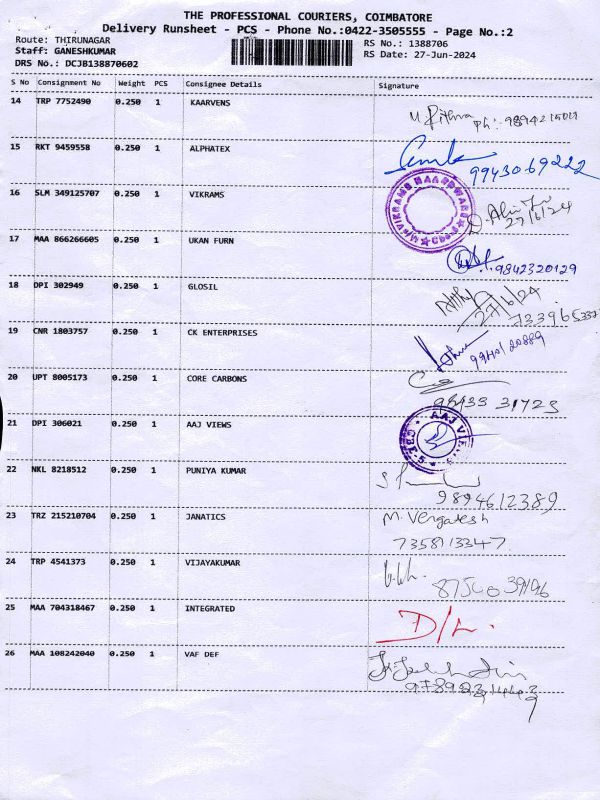 THE PROFESSIONAL COURIERS, COIMBATORE
Delivery Runsheet - PCS - Phone No.:0422-3505555 - Page No.:2
Route: THIRUNAGAR
RS No.: 1388706
Staff: GANESHKUMAR
RS Date: 27-Jun-2024
DRS No.: DCJB138870602
S No Consignment No Weight PCS Consignee Details Signature
14 TRP 7752490 0.250 1 KAARVENS
15 RKT 9459558 0.250 1 ALPHATEX
9943069222
16 SLM 349125707 0.250 1 VIKRAMS
27/6/24
17 MAA 866266605 0.250 1 UKAN FURN
9842320129
18 DPI 302949 0.250 1 GLOSIL
27/6/24
19 CNR 1803757 0.250 1 CK ENTERPRISES
20 UPT 8005173 0.250 1 CORE CARBONS
21 DPI 306021 0.250 1 AAJ VIEWS
AAJ VIE
22 NKL 8218512 0.250 1 PUNIYA KUMAR
9894612389
23 TRZ 215210704 0.250 1 JANATICS
M. Vengatesh
7358113347
24 TRP 4541373 0.250 1 VIJAYAKUMAR
25 MAA 704318467 0.250 1 INTEGRATED
D/L.
26 MAA 108242040 0.250 1 VAF DEF